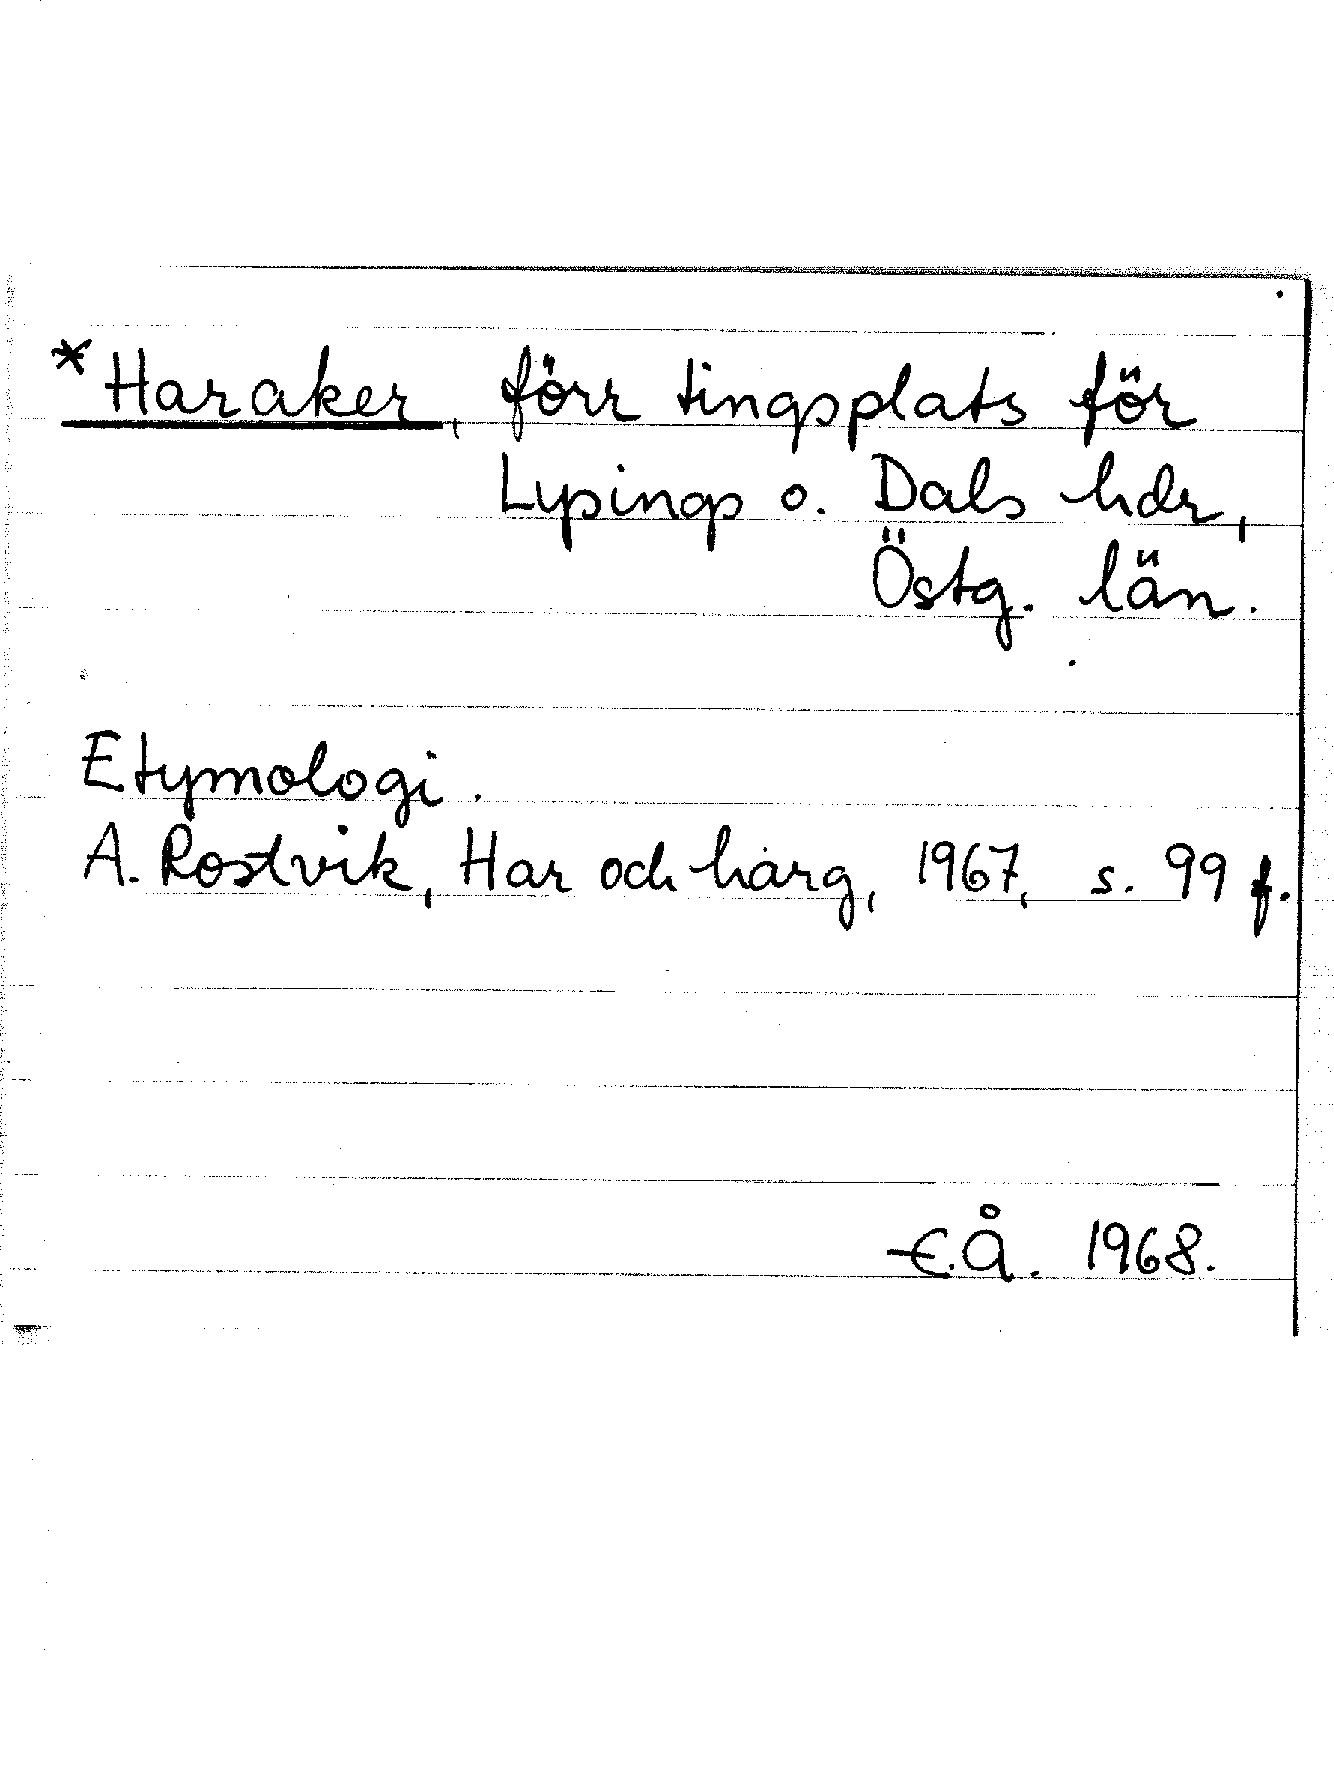 *Haraker, förr tingsplats för
Lysings o. Dals hdr,
Östg. län.
Etymologi.
A. Rostvik, Har och harg, 1967, s. 99 f.
E.Å. 1968.